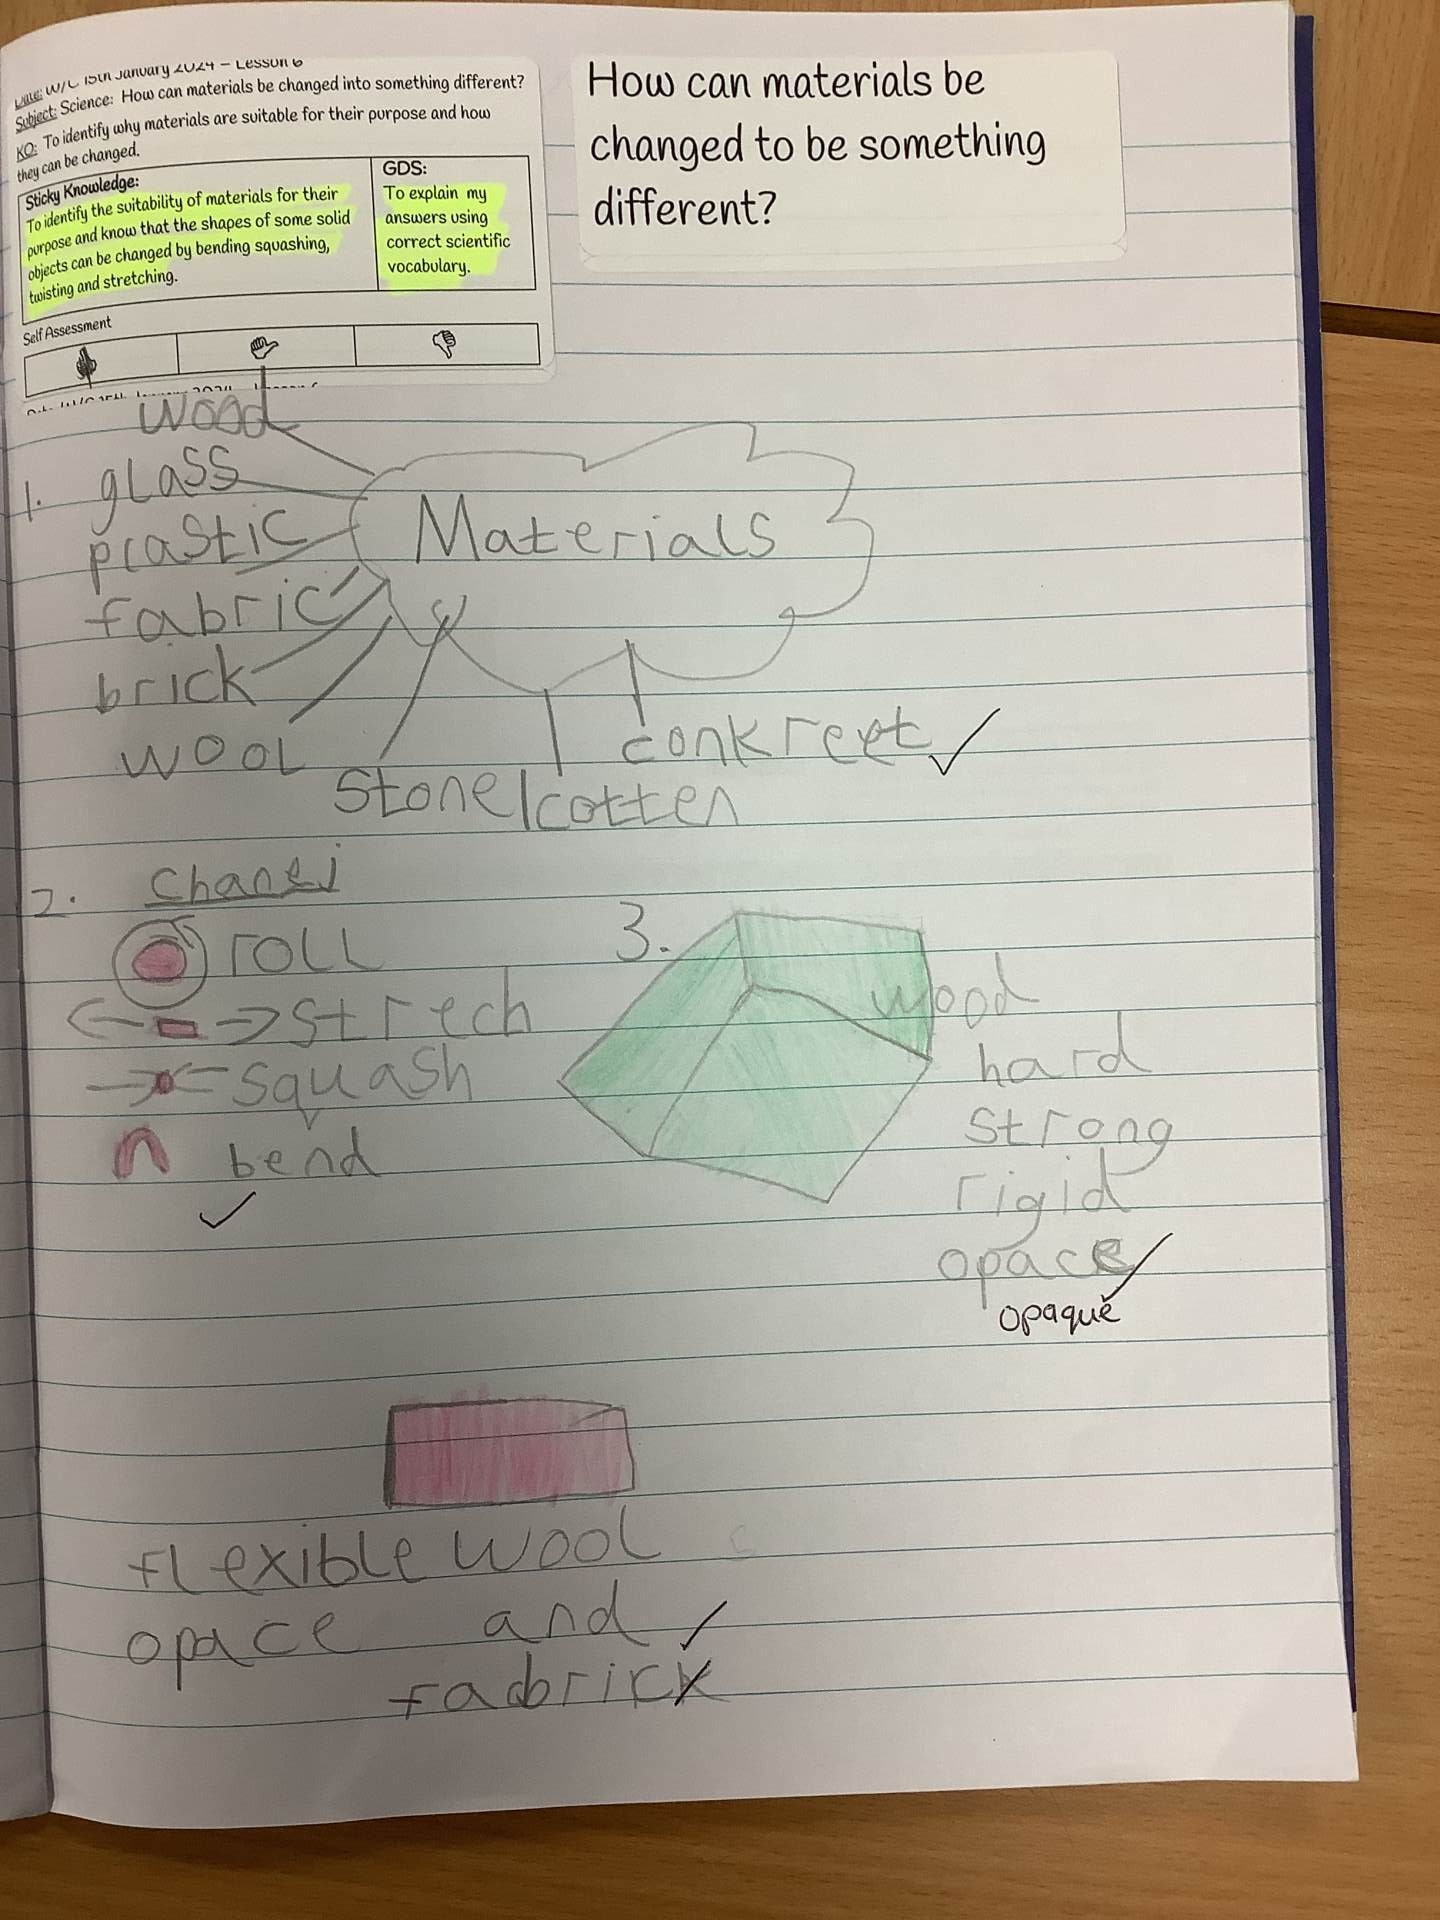 Date: W/C 15th January 2024 – Lesson 6
Subject: Science: How can materials be changed into something different?
KO: To identify why materials are suitable for their purpose and how
they can be changed.
Sticky Knowledge:
To identify the suitability of materials for their
purpose and know that the shapes of some solid
objects can be changed by bending squashing,
twisting and stretching.
GDS:
To explain my
answers using
correct scientific
vocabulary.
Self Assessment
How can materials be
changed to be something
different?
wood
1. glass
plastic
fabric
brick
wool
Stone
cotten
conkreet
Materials
2.
roll
strech
squash
bend
3.
wood
hard
strong
rigid
opace
opaque
flexible wool
opace and
fabrick